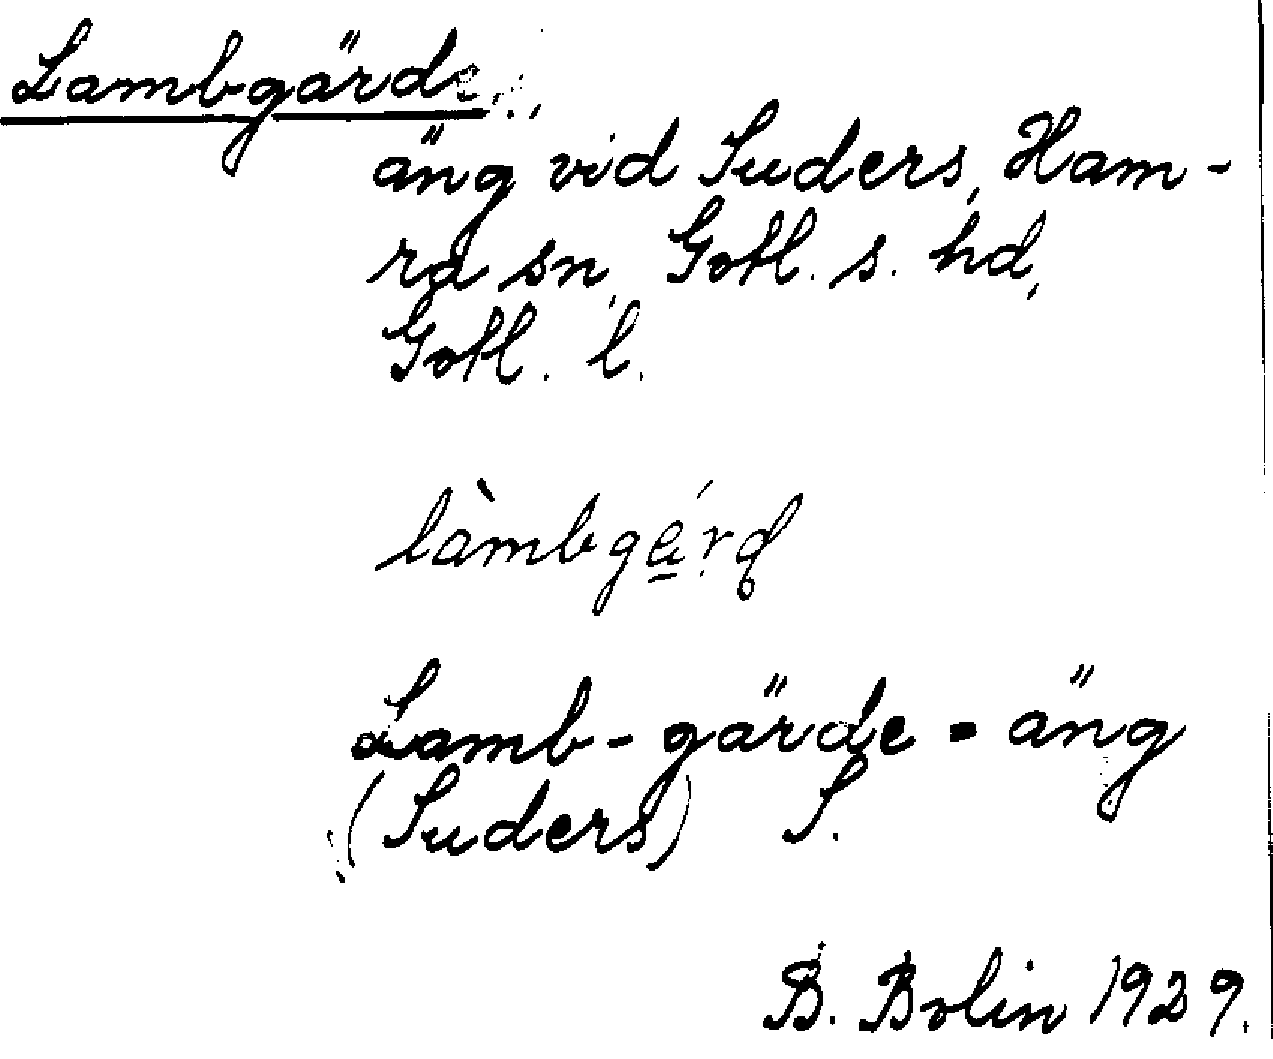 Lambgärde,
äng vid Suders, Ham-
ra sn, Gotl. s. hd,
Gotl. l.
làmbgä́rd
Lamb-gärde = äng
(Suders) S.
B. Bolin 1929.